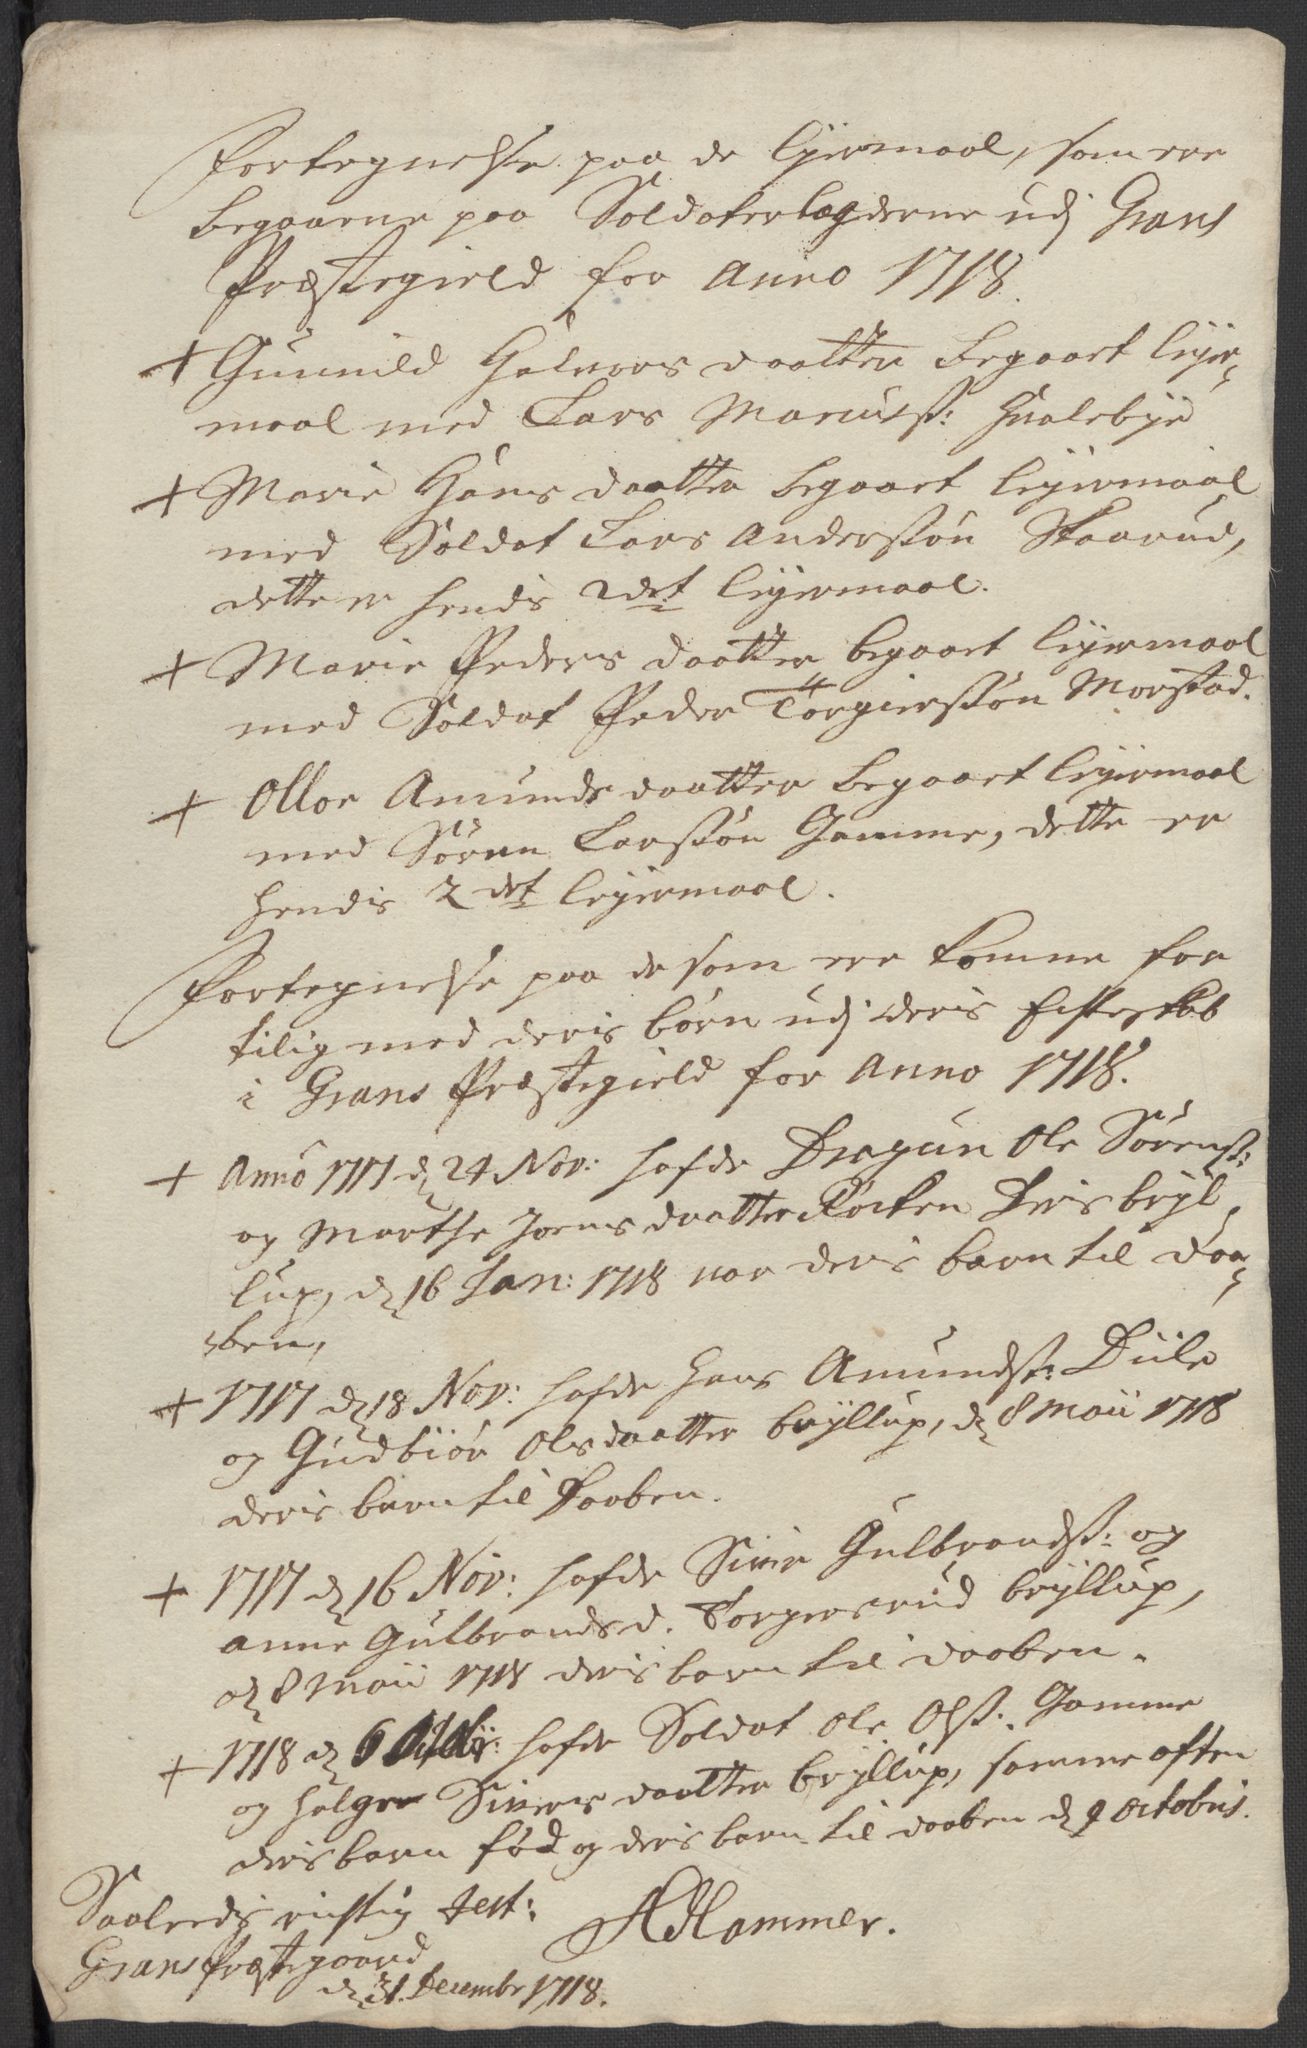 Fortegnelse paa de lejermaal, som ere
begaaene paa Soldaterlægderne udj Grans
Præstegield for Anno 1718.
+ Gunnild Halvors daatter begaaet lejer-
maal med Lars Mariuss: Hvalebye
+ Marie Hans daatter begaaet lejermaal
med Soldat Lars Anderssøn Skaarud,
dette er hendis 2det lejermaal.
+ Marie Peders daatter begaaet lejermaal
med Soldat Peder Torgierssøn Morstad.
+ Olloe Amunds daatter begaaet lejermaal
med Søren Larssøn Gamme, dette er
hendis 2det lejermaal.
Fortegnelse paa de som ere komne for
tilig med deris børn udj deris Echteskab
i Grans Præstegield for Anno 1718.
+ Anno 1717 d 24 Nov: hafde Dragun Ole Sørens:
og Marthe Joens daatter Røcken deris bryl
lup, d 16 Jan: 1718 var deris barn til daa-
ben,
+ 1717 d 18 Nov: hafde Hans Amundss: Diile
og Gudbiør Olsdaatter bryllup, d 8 Maii 1718
deris barn til Daaben.
+ 1717 d 16 Nov: hafde Siver Gulbrandss: og
Anne Gulbrandsd. Torgersrud bryllup,
d 8 Maii 1718 deris barn til daaben.
+ 1718 d 6 hafde Soldat Ole Olss: Gamme
og Helgee Sivers daatter bryllup, samme aften
deris barn fød og deris barn til daaben d 9 Octobris.
Saaleedis rigtig test:
AHammer.
Grans Præstegaard
d 31. Decembr 1718.